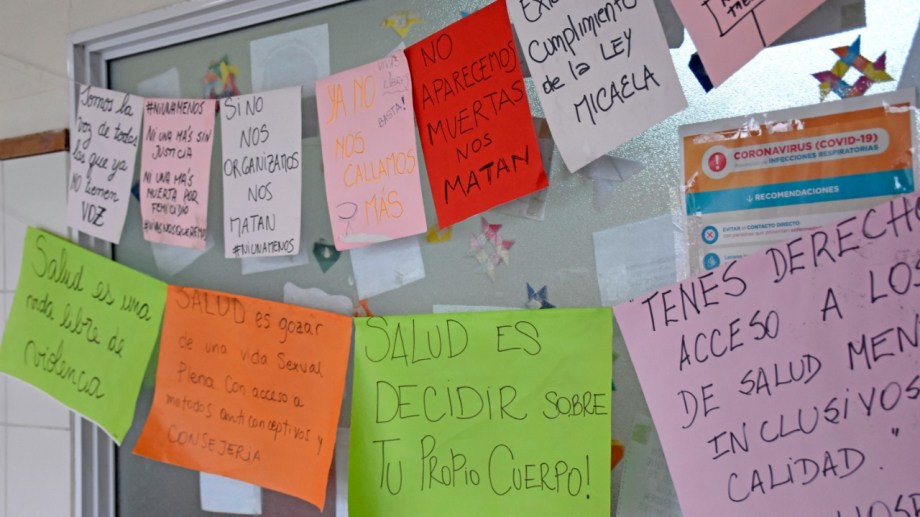 Somos la
voz de todas
las que ya
no tienen
voz
#NIUNAMENOS
Ni una más sin
justicia
Ni una más
muerta por
femicidio
#VIVASNOSQUEREMOS
SI NO
NOS
ORGANIZAMOS
NOS
MATAN
#NIUNAMENOS
YA NO
NOS
CALLAMOS
MÁS
BASTA!
NO
APARECEMOS
MUERTAS
NOS
MATAN
Cumplimiento
de la LEY
MICAELA
CORONAVIRUS (COVID-19)
PREVENCIÓN DE INFECCIONES RESPIRATORIAS
RECOMENDACIONES
EVITAR EL CONTACTO DIRECTO
Salud es una
vida libre de
violencia
SALUD es gozar
de una vida sexual
Plena. Con acceso a
metodos anticonceptivos y
CONSEJERIA
SALUD ES
DECIDIR SOBRE
TU PROPIO CUERPO!
"TENES DERECHO
ACCESO A LOS
DE SALUD MEN
INCLUSIVOS
CALIDAD."
HOSP